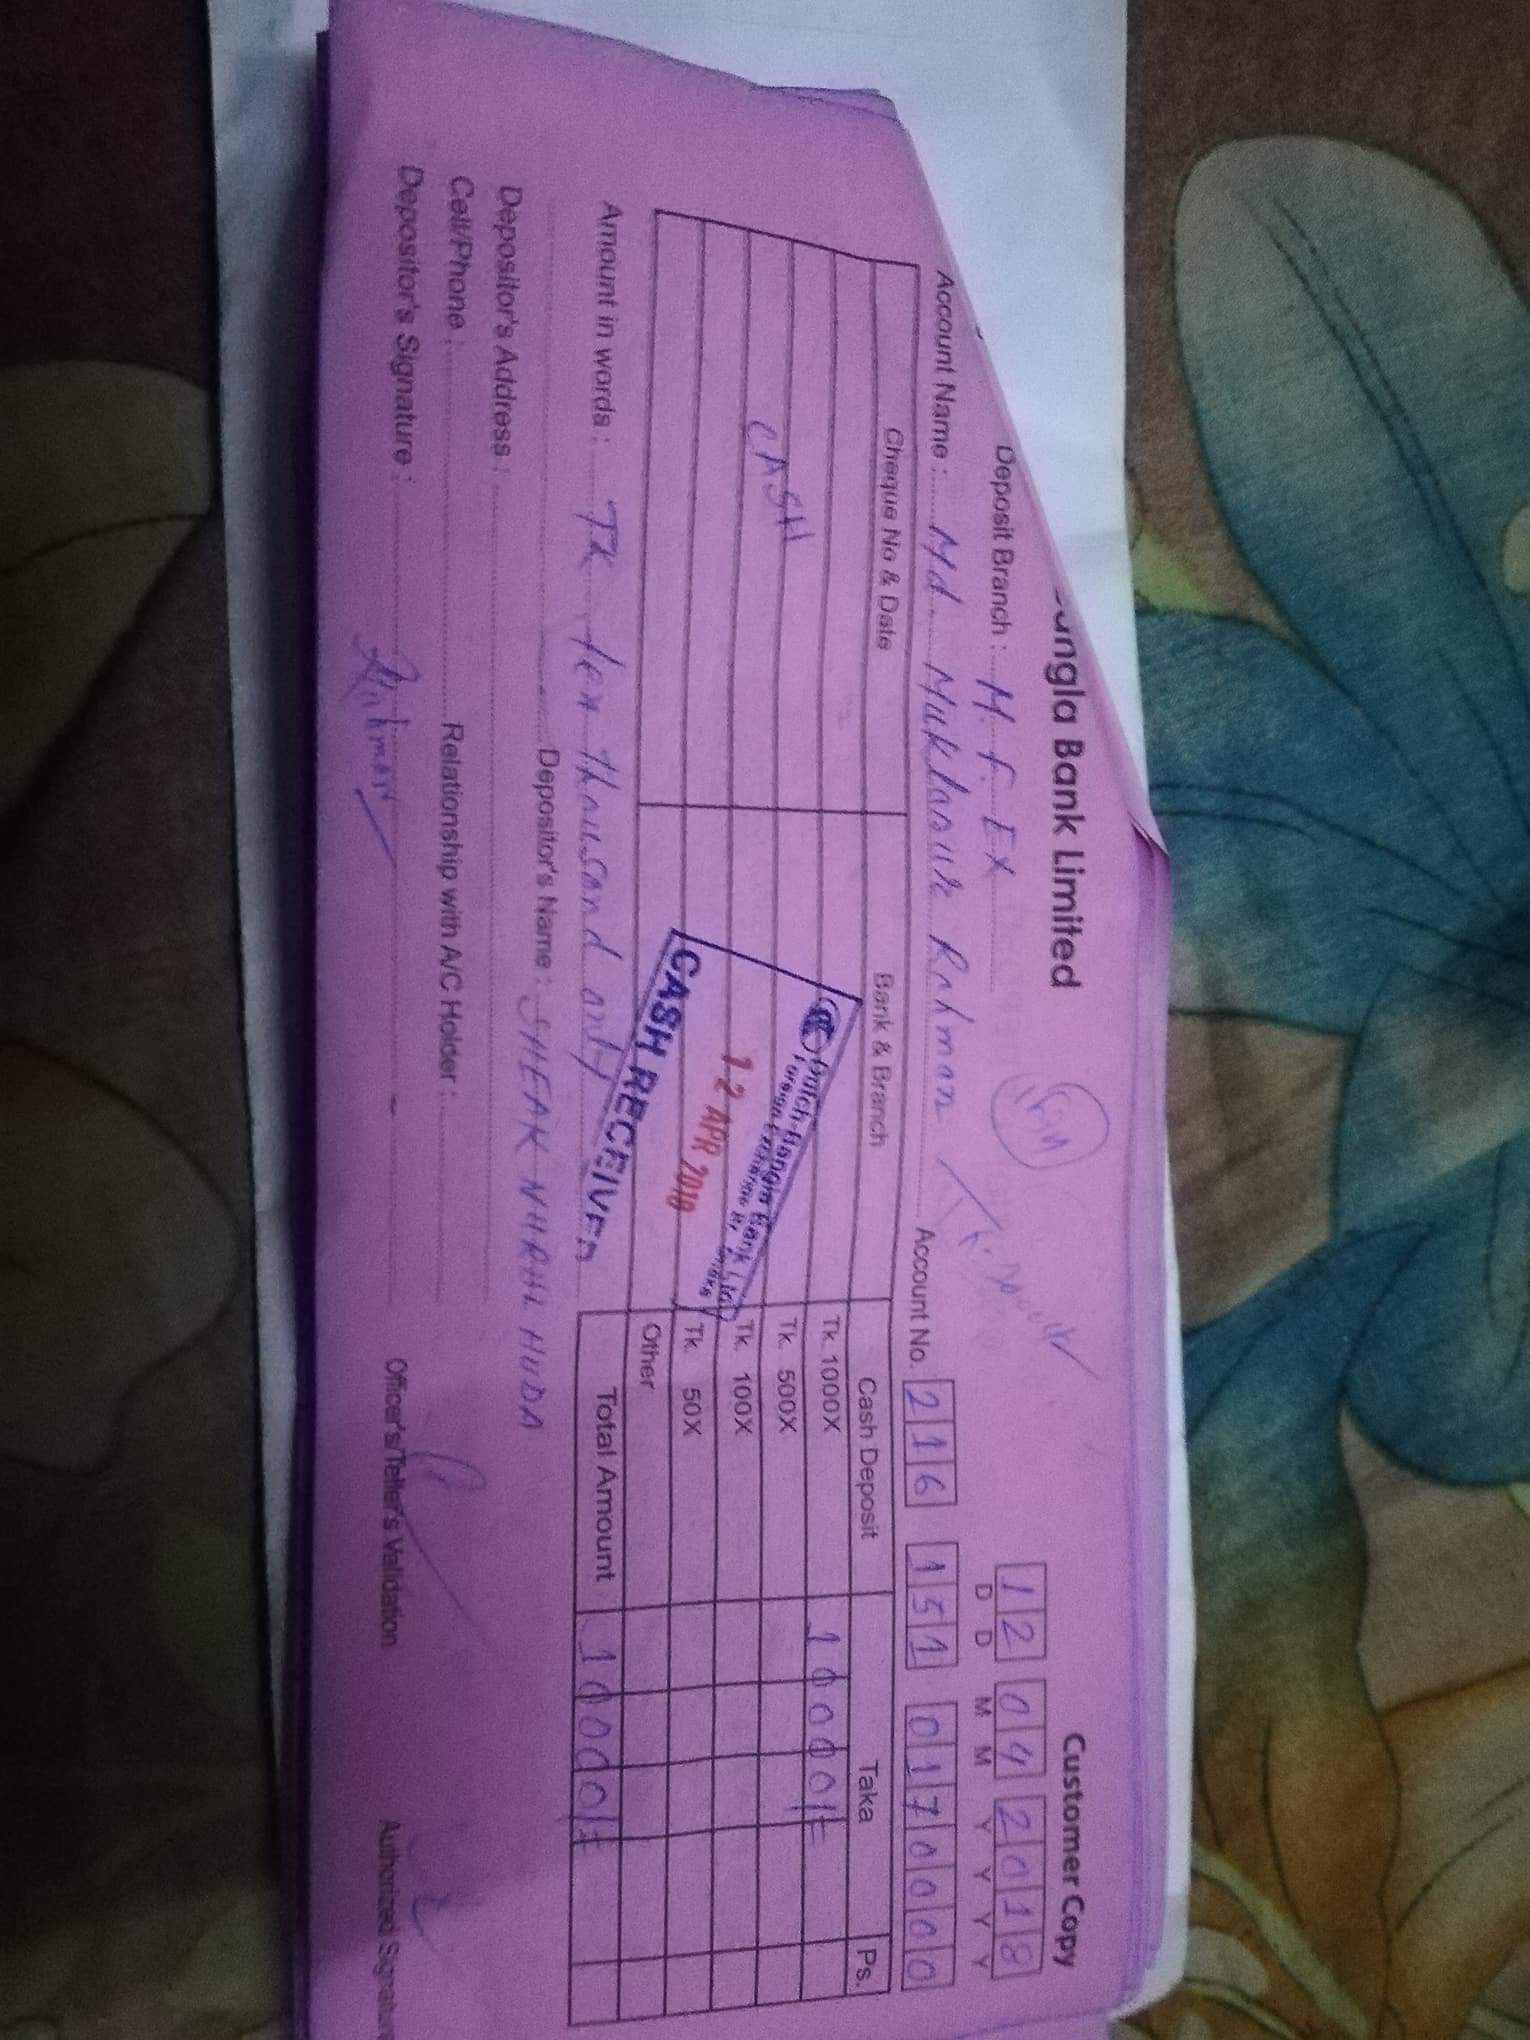 angla Bank Limited
Customer Copy
Deposit Branch : M. F. EX
12 04 2018
D D M M Y Y Y Y
Account Name : Md Rahman Account No. 216 151 0170000
Cheque No & Date Bank & Branch Cash Deposit Taka Ps.
Tk. 1000X 10000/=
Tk. 500X
CASH
Tk. 100X
Tk. 50X
Other
Total Amount 10000/=
Dutch-Bangla Bank Ltd
Foreign Exchange Br. Dhaka
12 APR 2018
CASH RECEIVED
Amount in words : TK ten thousand only
Depositor's Name : HUDA
Depositor's Address :
Cell/Phone : Relationship with A/C Holder :
Depositor's Signature : Officer's/Teller's Validation Authorized Signature